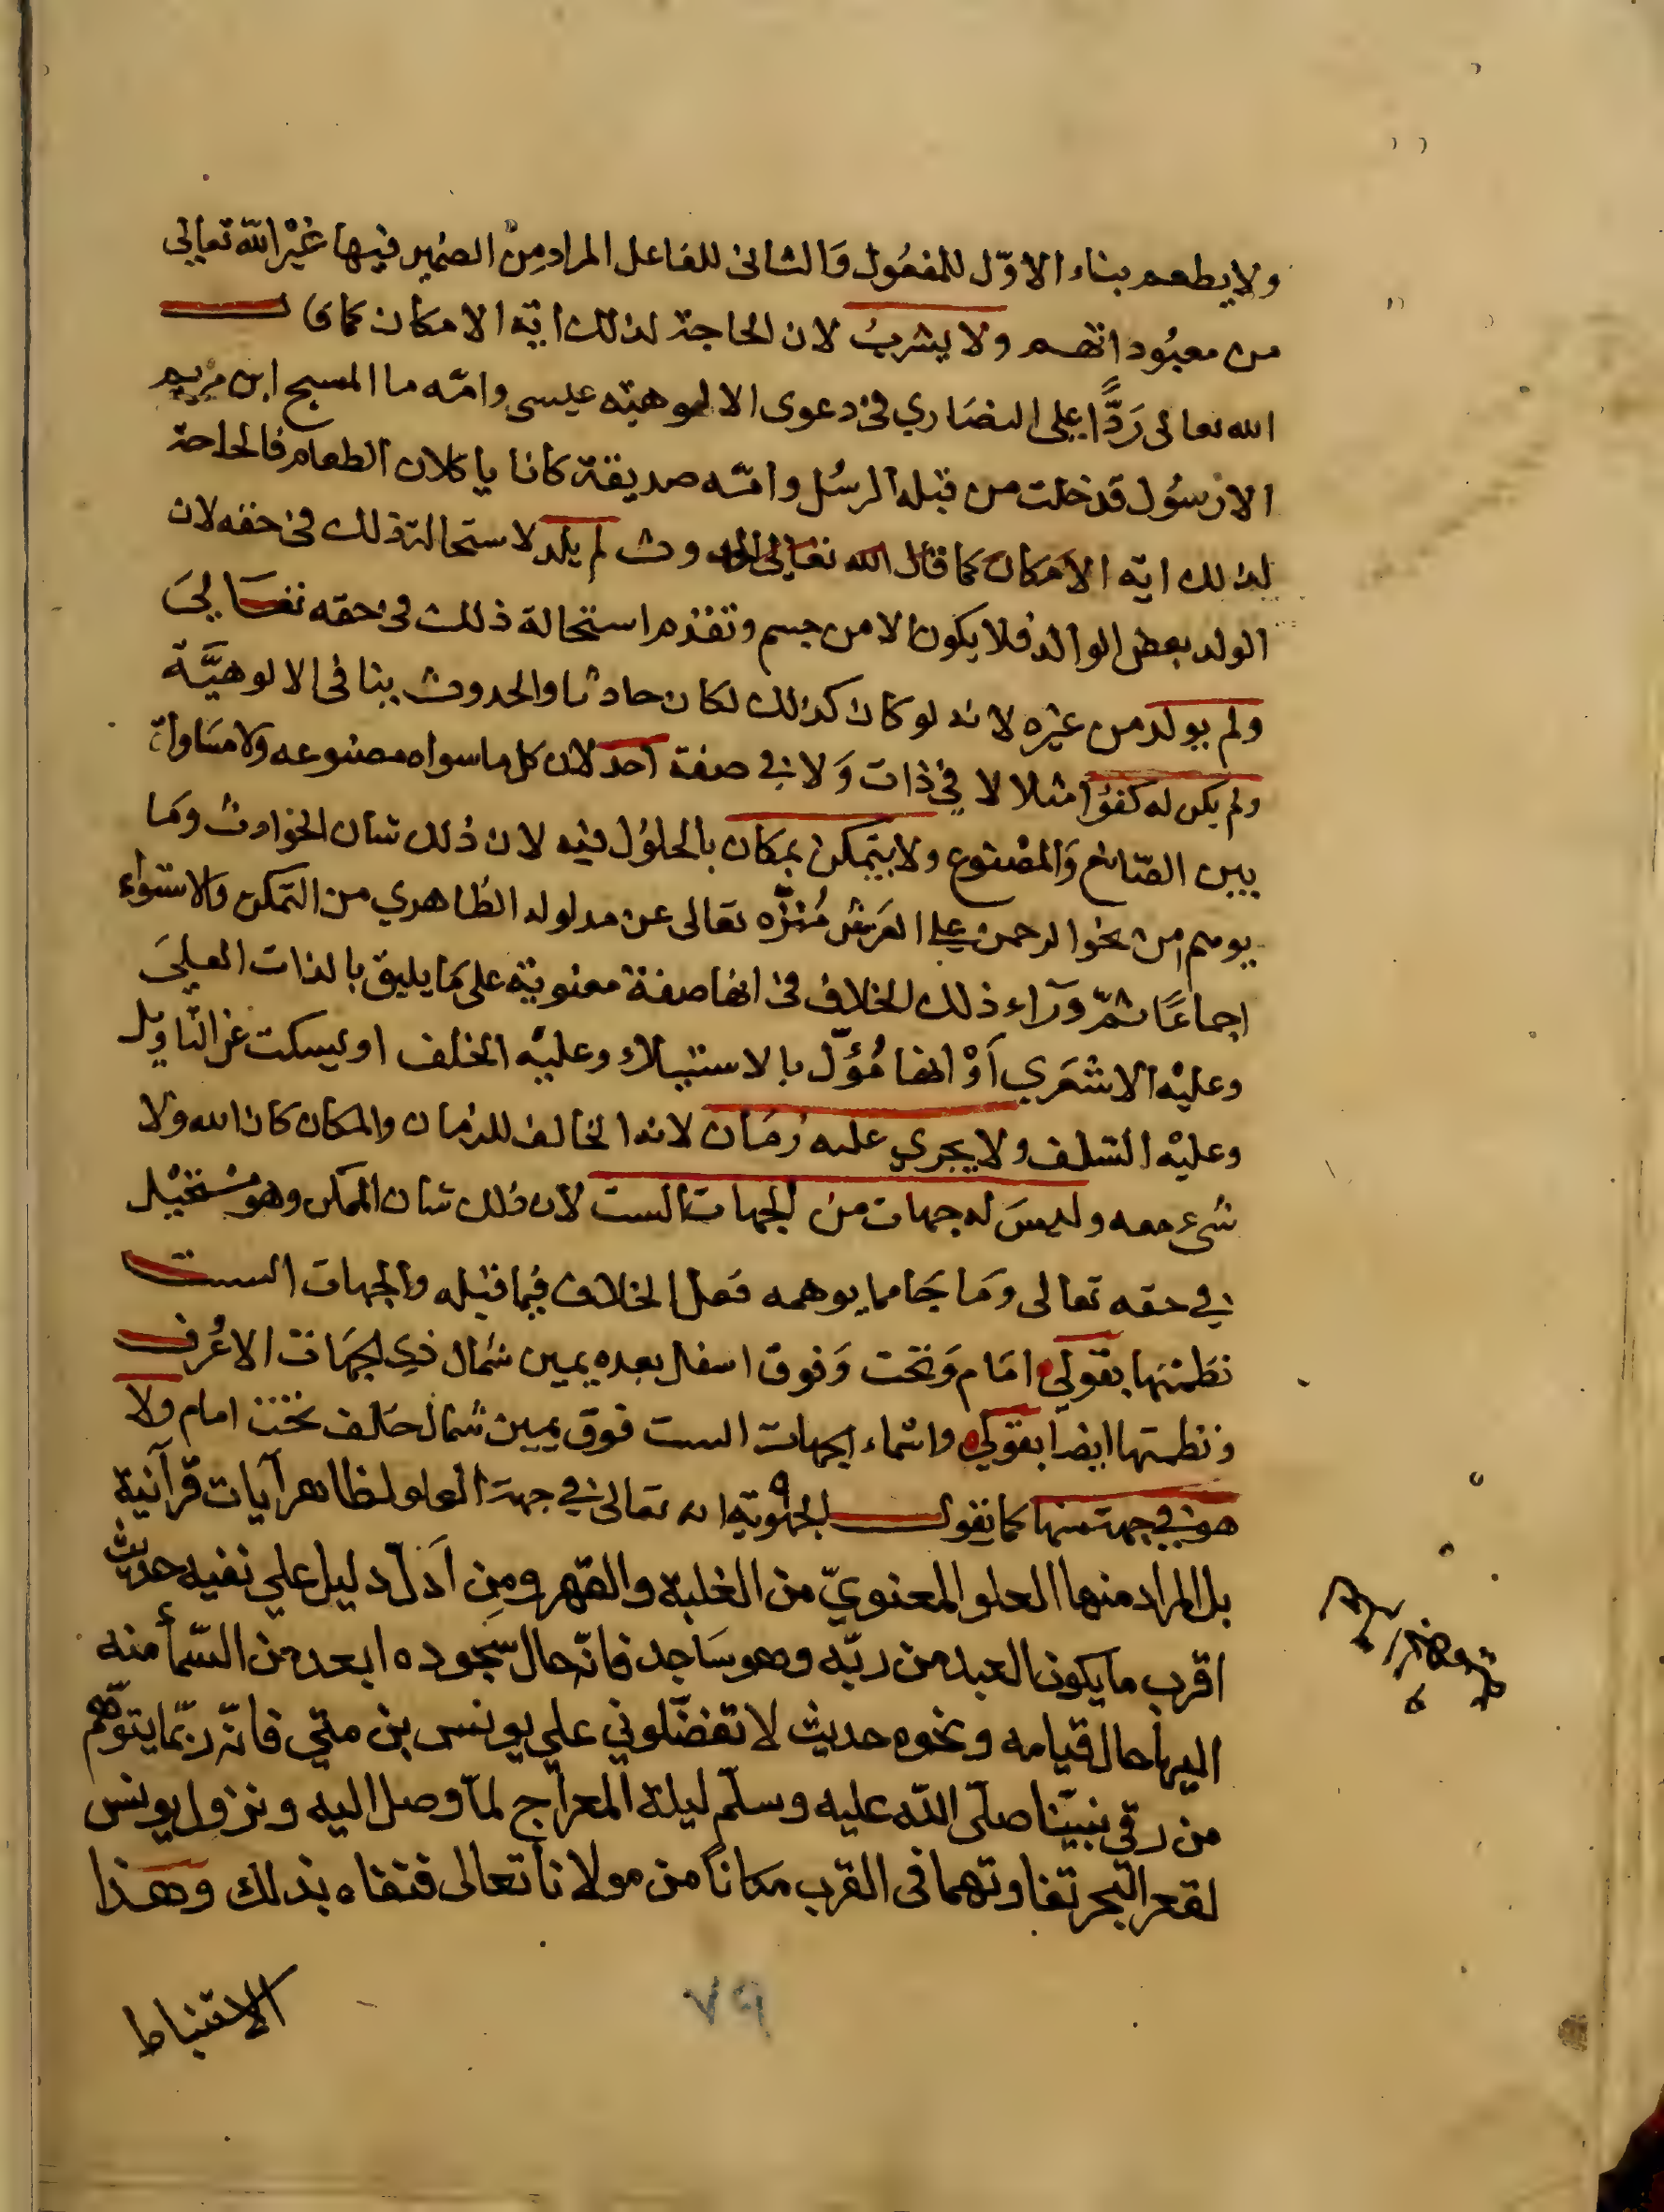 ولا يطعم ببناء الاوّل للمفعُول وَالثاني للفاعل المراد مِنْ الضمير فيها غيْر الله تعالى
من معبُوداتهم ولا يشربُ لان الحاجة لذلك اية الامكان كما قال
الله تعالى رَدًّا على النصَاري في دعوى الالوهيّه عيسى وامّه ما المسيح ابن مريم
الا رسُول قد خلت من قبله الرسُل وامّه صديقة كانا ياكلان الطعام فالحاجة
لذلك اية الامكان كما قال الله تعالى لم يلد لاستحالة ذلك في حقه لان
الولد بعض الوالد فلا يكون الا من جسم وتقدم استحالة ذلك في حقه تعَالىَ
ولم يولد من غيْره لانه لو كان كذلك لكان حادثا والحدوث ينافي الالوهيَّة
ولم يكن له كفوًا مثلا لا في ذات وَلا في صفة احد لان كل ما سواه مصنوعه ولا مسَاواة
بين الصّانع وَالمصْنوع ولا يتمكن بمكان بالحلوُل فيه لان ذلك شان الحوادث وَما
يوهم من نحو الرحمن على العَرش مُنزّه تعالى عن مدلوله الظاهري من التمكن والاستواء
اجماعًا ثمّ وَرَاء ذلك الخلاف في انها صفة معنوية على مَا يليق بالذات العليَ
وعليْه الاشعَري اَوْ انها مُؤَوّل بالاستيلاء وعليْه الخلف او يسكت عن التاويل
وعليْه السّلف ولا يجري عليه زمَان لانه الخالف للزمان والمكان كان الله ولا
شيء معه وليسَ له جهات من الجهات الست لان ذلك شان الممكن وهو مسْتحيْل
في حقه تعالى وَمَا جَا مما يوهمه فعل الخلاف فيما قبله والجهات الست
نظمتهَا بقولي امَام وَتحت وَفوق اسفل بعده يمين شمال ذي الجهَات الاعُرف
ونظمتها ايضا بقولي واسْماء الجهات الست فوق يمين شمال خلف تحت امام ولا
هو في جهة منها كما يقول الجهويّة انه تعالى في جهة العلو لظاهر آيات قرآنية
بل المراد منها العلو المعنويّ من الغلبة والقهر ومِن اَدَلّ دليل علي نفيه حديث
اقرب ما يكون العبد من ربّه وهو سَاجد فانّه حال سجوده ابعد من السّمأ منه
اليها حال قيامه ونحوه حديث لا تفضّلوني علي يونس بن متي فانّه ربّما يتوهّم
من رقي نبيّنا صلّى اللّه عليه وسلّم ليلة المعراج لمّا وصل اليه ونزول يونس
لقعر البحر تفاوتهما في القرب مكانًا من مولانا تعالى فنفاه بذلك وهذا
الاستنباط
٧٩